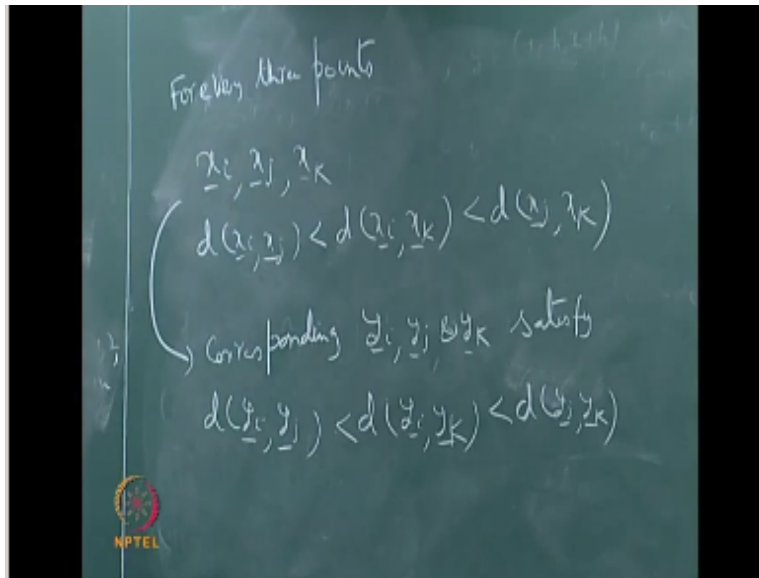 For every three points
x̲i, x̲j, x̲K
d(x̲i, x̲j) < d(x̲i, x̲K) < d(x̲j, xK)
Corresponding y̲i, y̲j & y̲K satisfy
d(y̲i, y̲j) < d(y̲i, y̲K) < d(y̲j, y̲K)
NPTEL